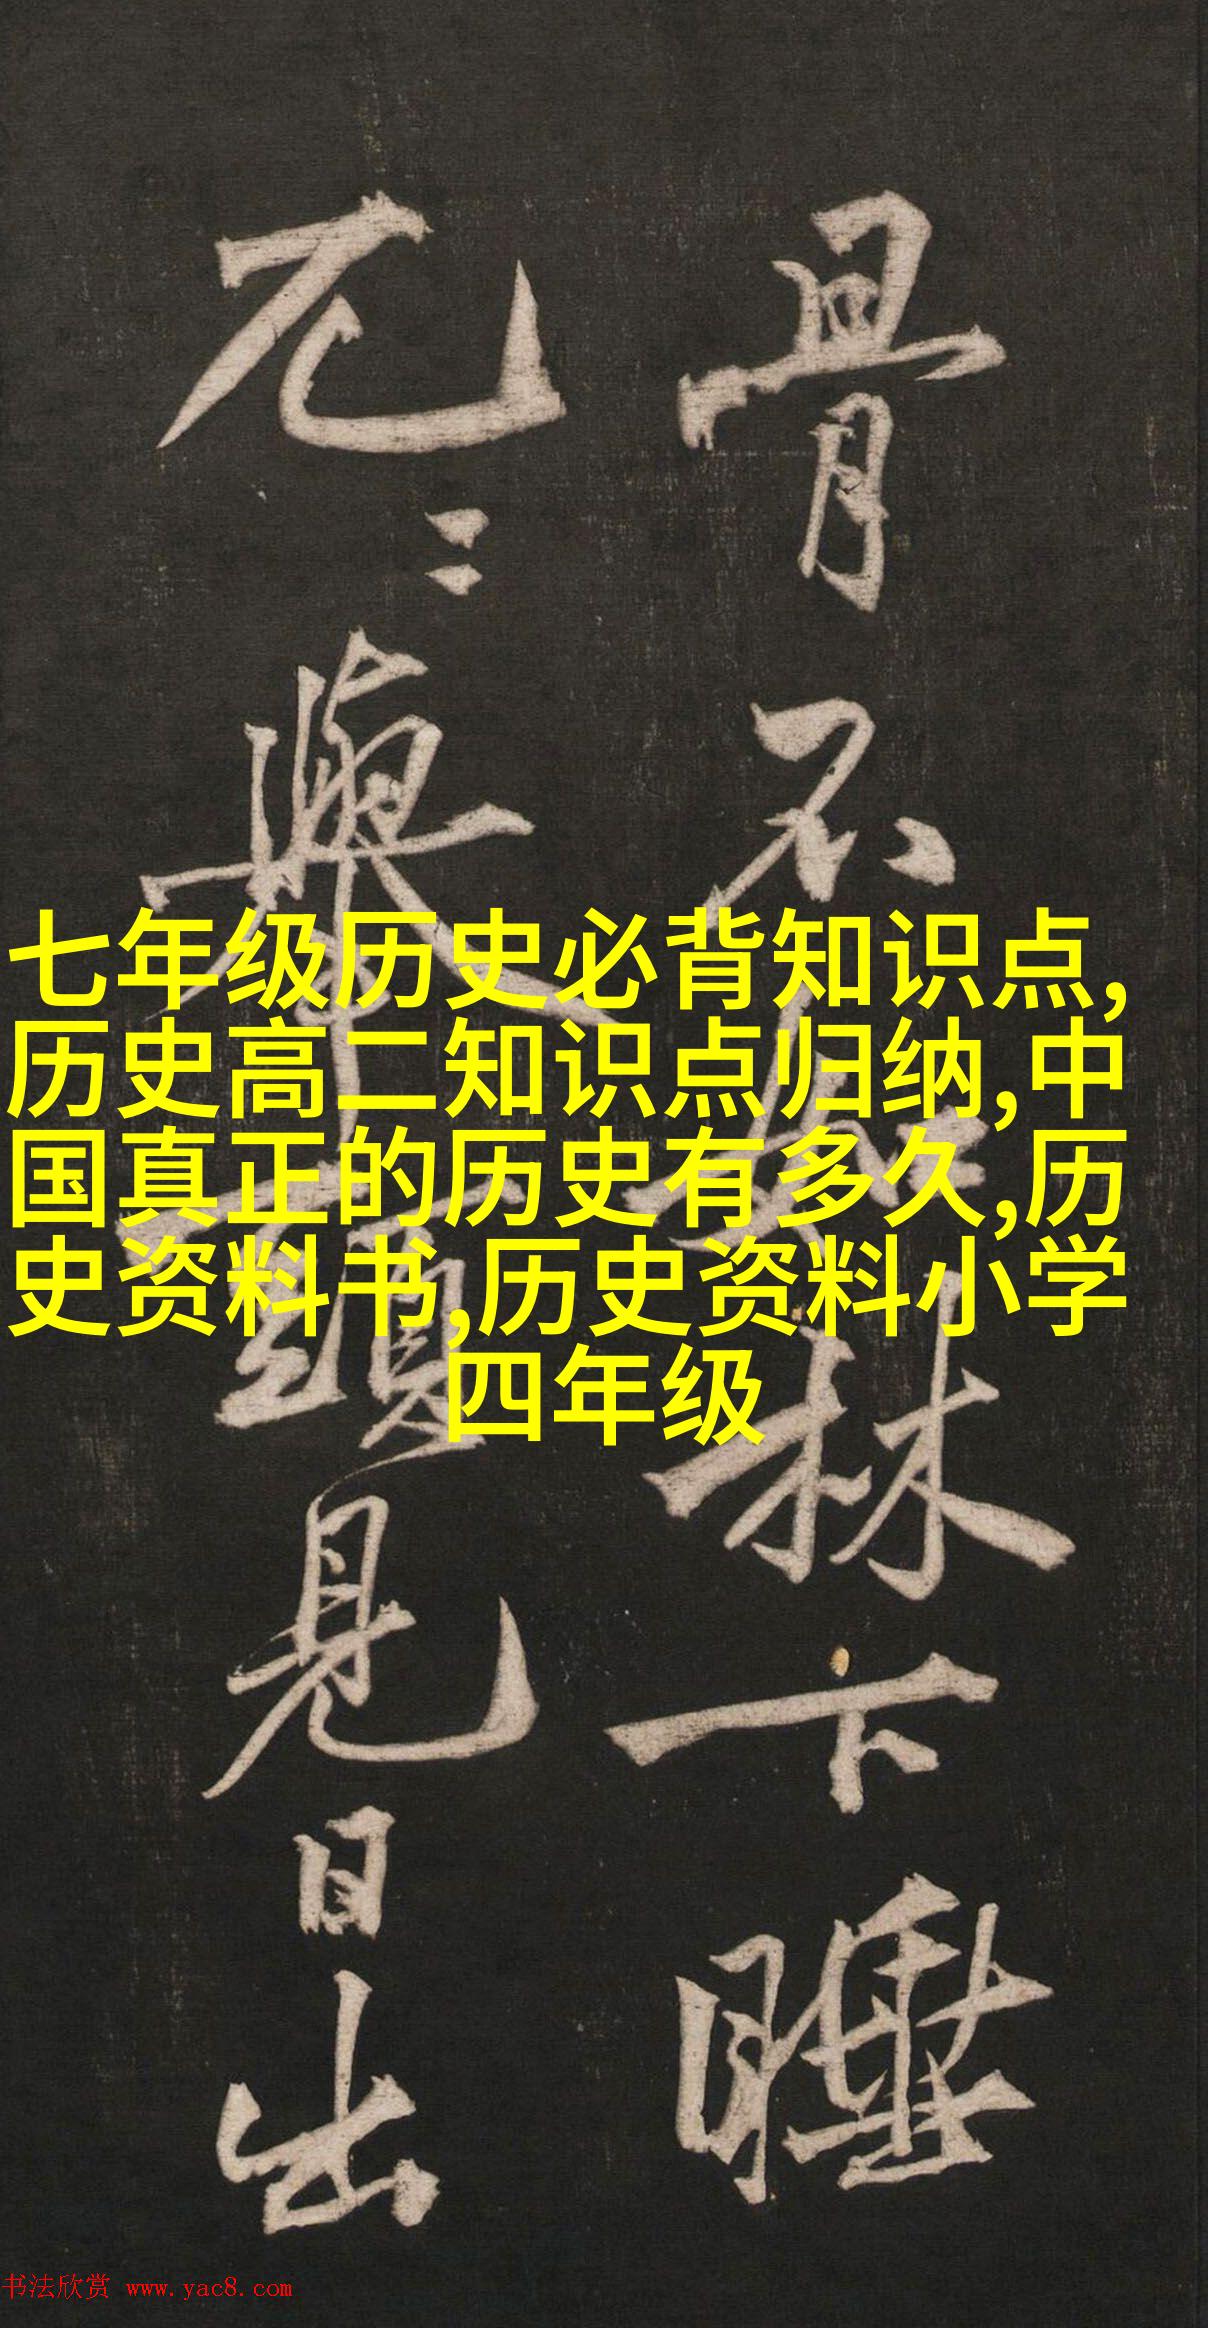 骨不如林下睡
兀兀輿頭見日出
七年级历史必背知识点,
历史高二知识点归纳,中
国真正的历史有多久,历
史资料书,历史资料小学
四年级
书法欣赏 www.yac8.com